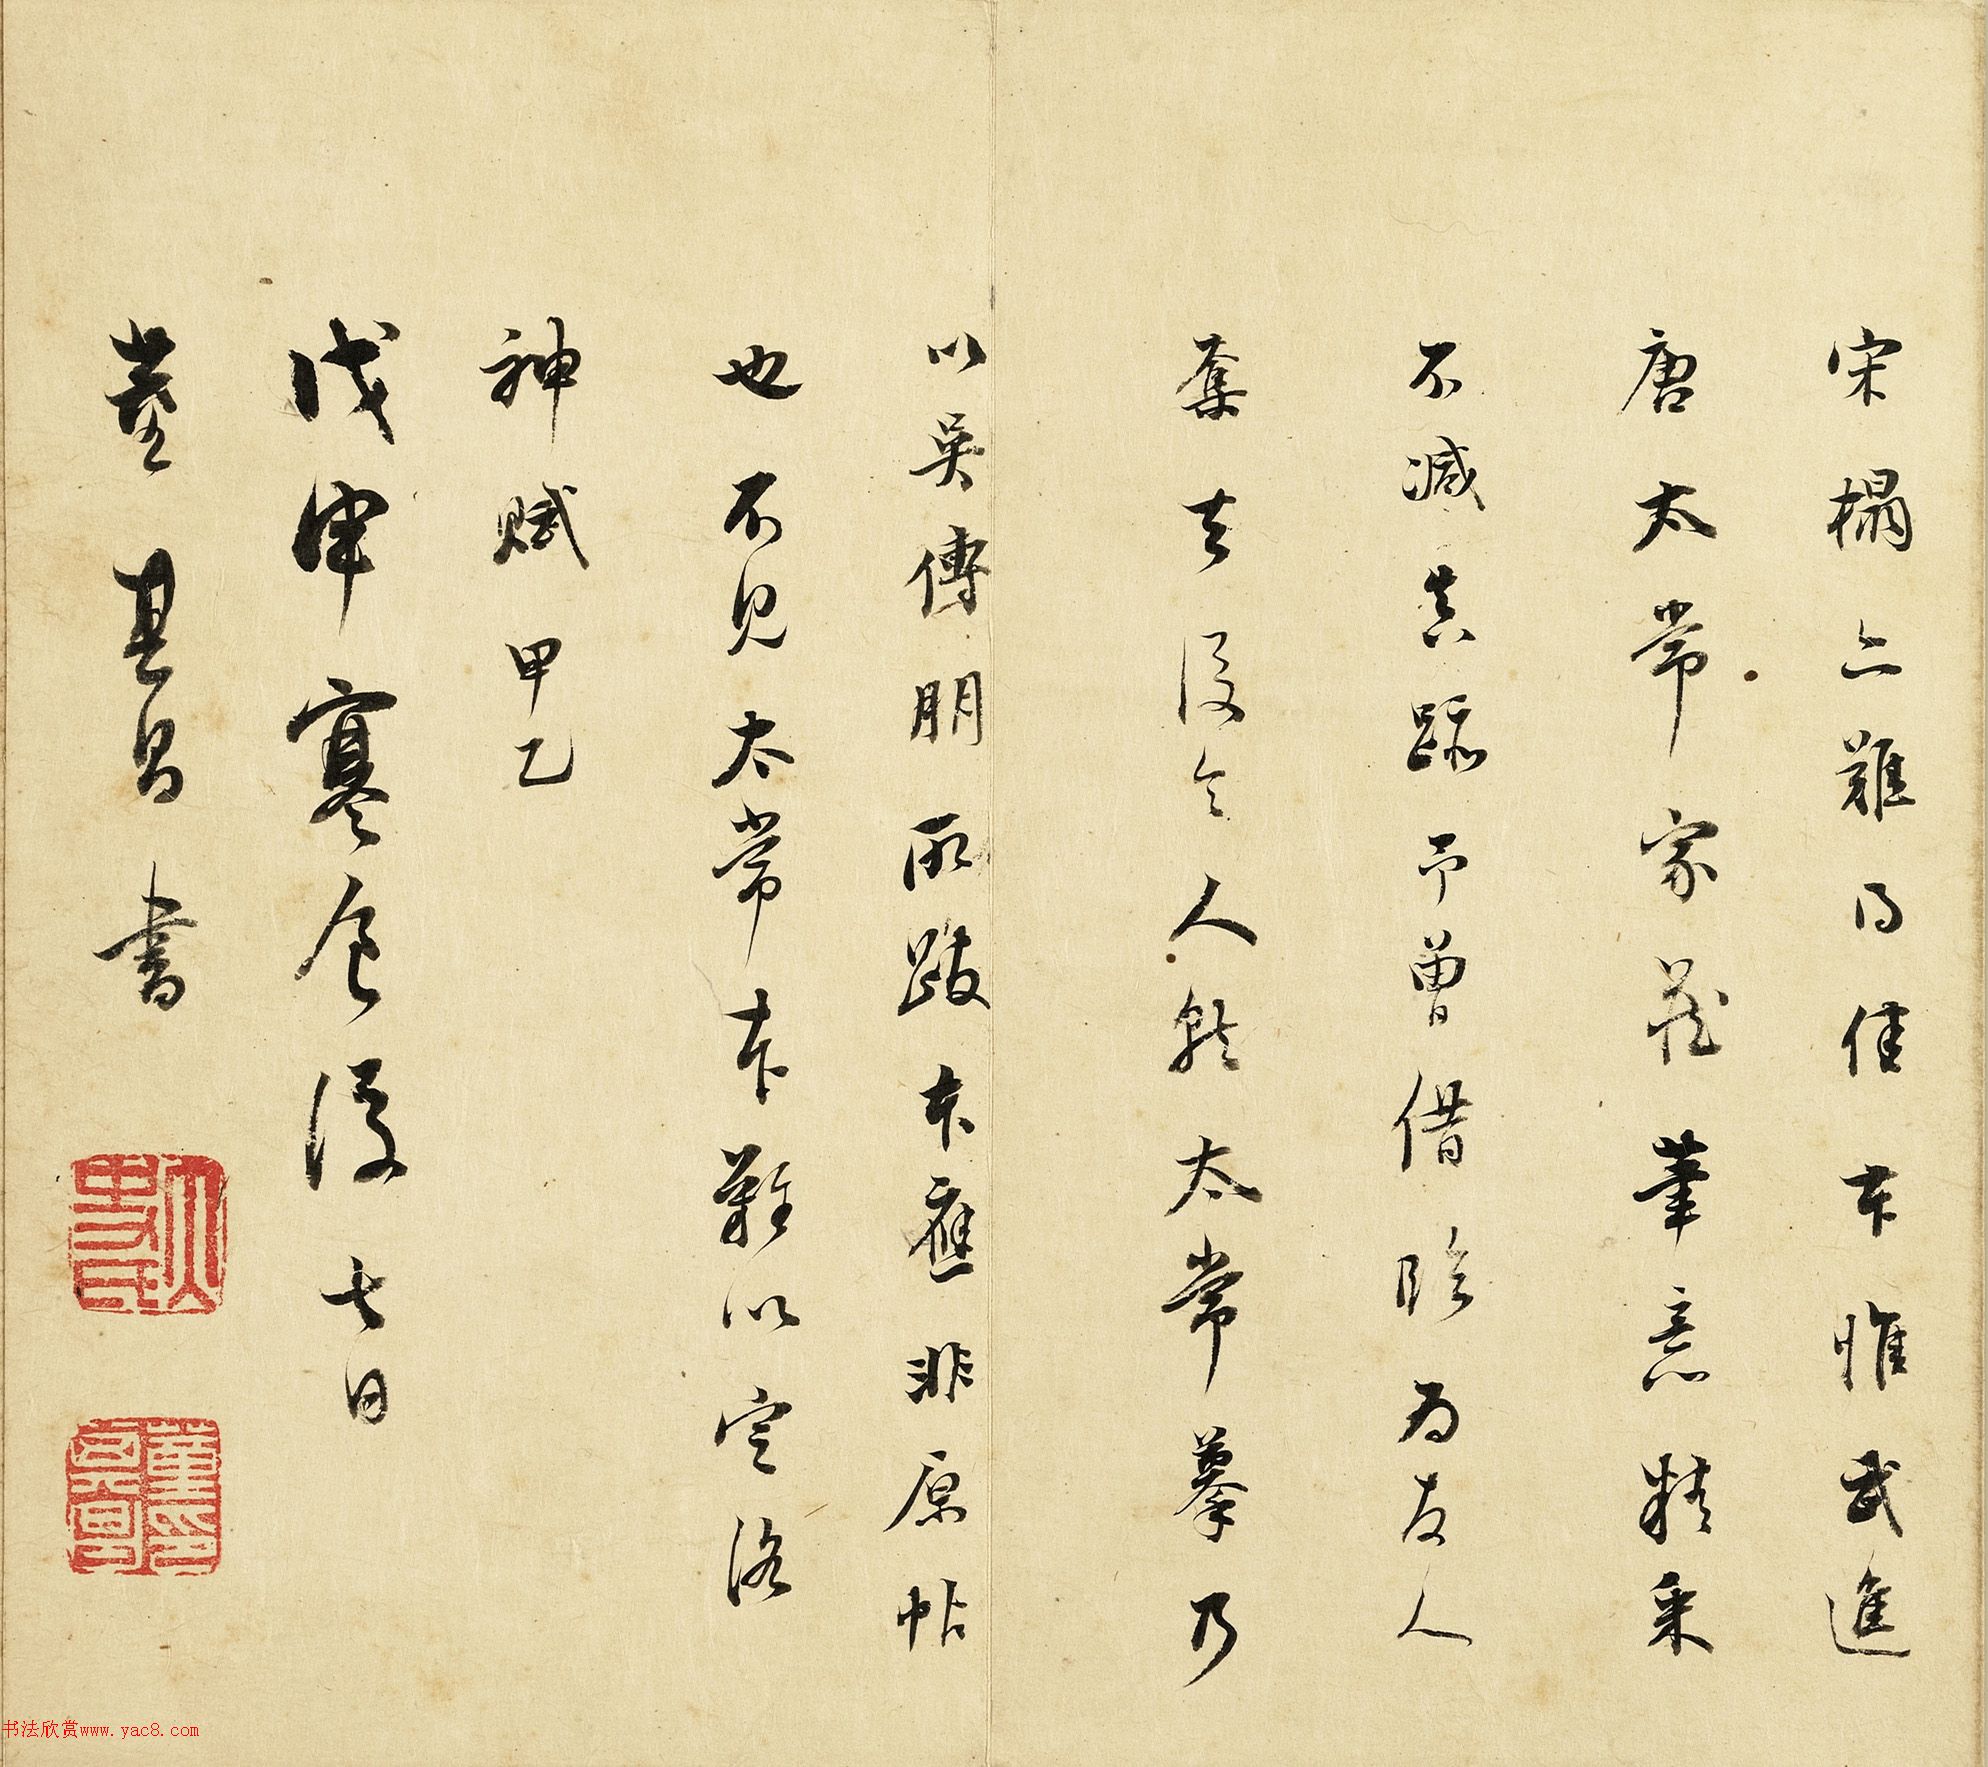 宋榻亦難得佳本惟武進
唐太常家藏筆意精采
不減真跡予曾借臨為友人
奪去後令人就太常摹乃
以吳傅朋所跋本應非原帖
也不見太常本難以定洛
神賦甲乙
戊申寒食後七日
董其昌書
太史氏
董其昌印
书法欣赏www.yac8.com